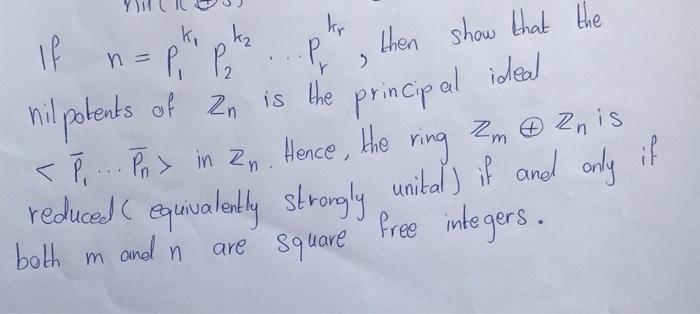 If n = p₁^k₁ p₂^k₂ ... pᵣ^kᵣ, then show that the
nilpotents of Zn is the principal ideal
< P̄₁ ... P̄n > in Zn. Hence, the ring Zm ⊕ Zn is
reduced ( equivalently strongly unital) if and only if
both m and n are square free integers.